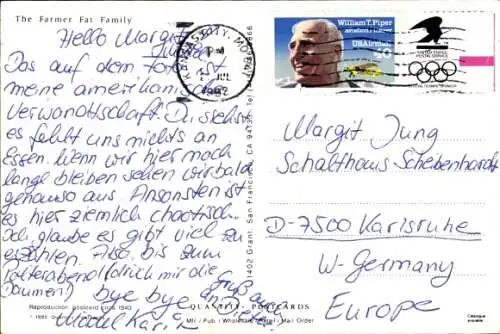 The Farmer Fat Family
Hello Margit
Das auf dem Foto ist
meine amerikanische
Verwandtschaft. Du siehst
es fehlt uns nichts an
Essen. Wenn wir hier noch
lange bleiben sehen wir bald
genauso aus. Ansonsten ist
es hier ziemlich chaotisch.
Ich glaube es gibt viel zu
erzählen. Also bis zum
Polterabend (drück mir die
Daumen!) bye bye
Gruß an
Reproduction postcard circa 1940
QUANTITY POSTCARDS
Mfr / Pub / Wholesale / Mail Order
1402 Grant, San Francisco, CA 94133
KANSAS CITY, MO
PM
JUL
1992
William T. Piper
USAirmail
40
UNITED STATES
POSTAL SERVICE
Margit Jung
Schalthaus Scheibenhardt
D-7500 Karlsruhe
W-Germany
Europe